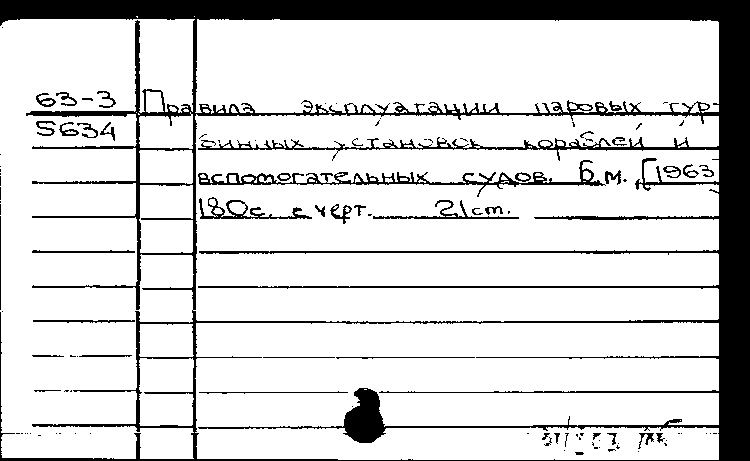 63-3 Правила эксплуатации паровых тур-
5634 бинных установок кораблей и
вспомогательных судов. Б.м. [1963
180с. с черт. 21 cm.